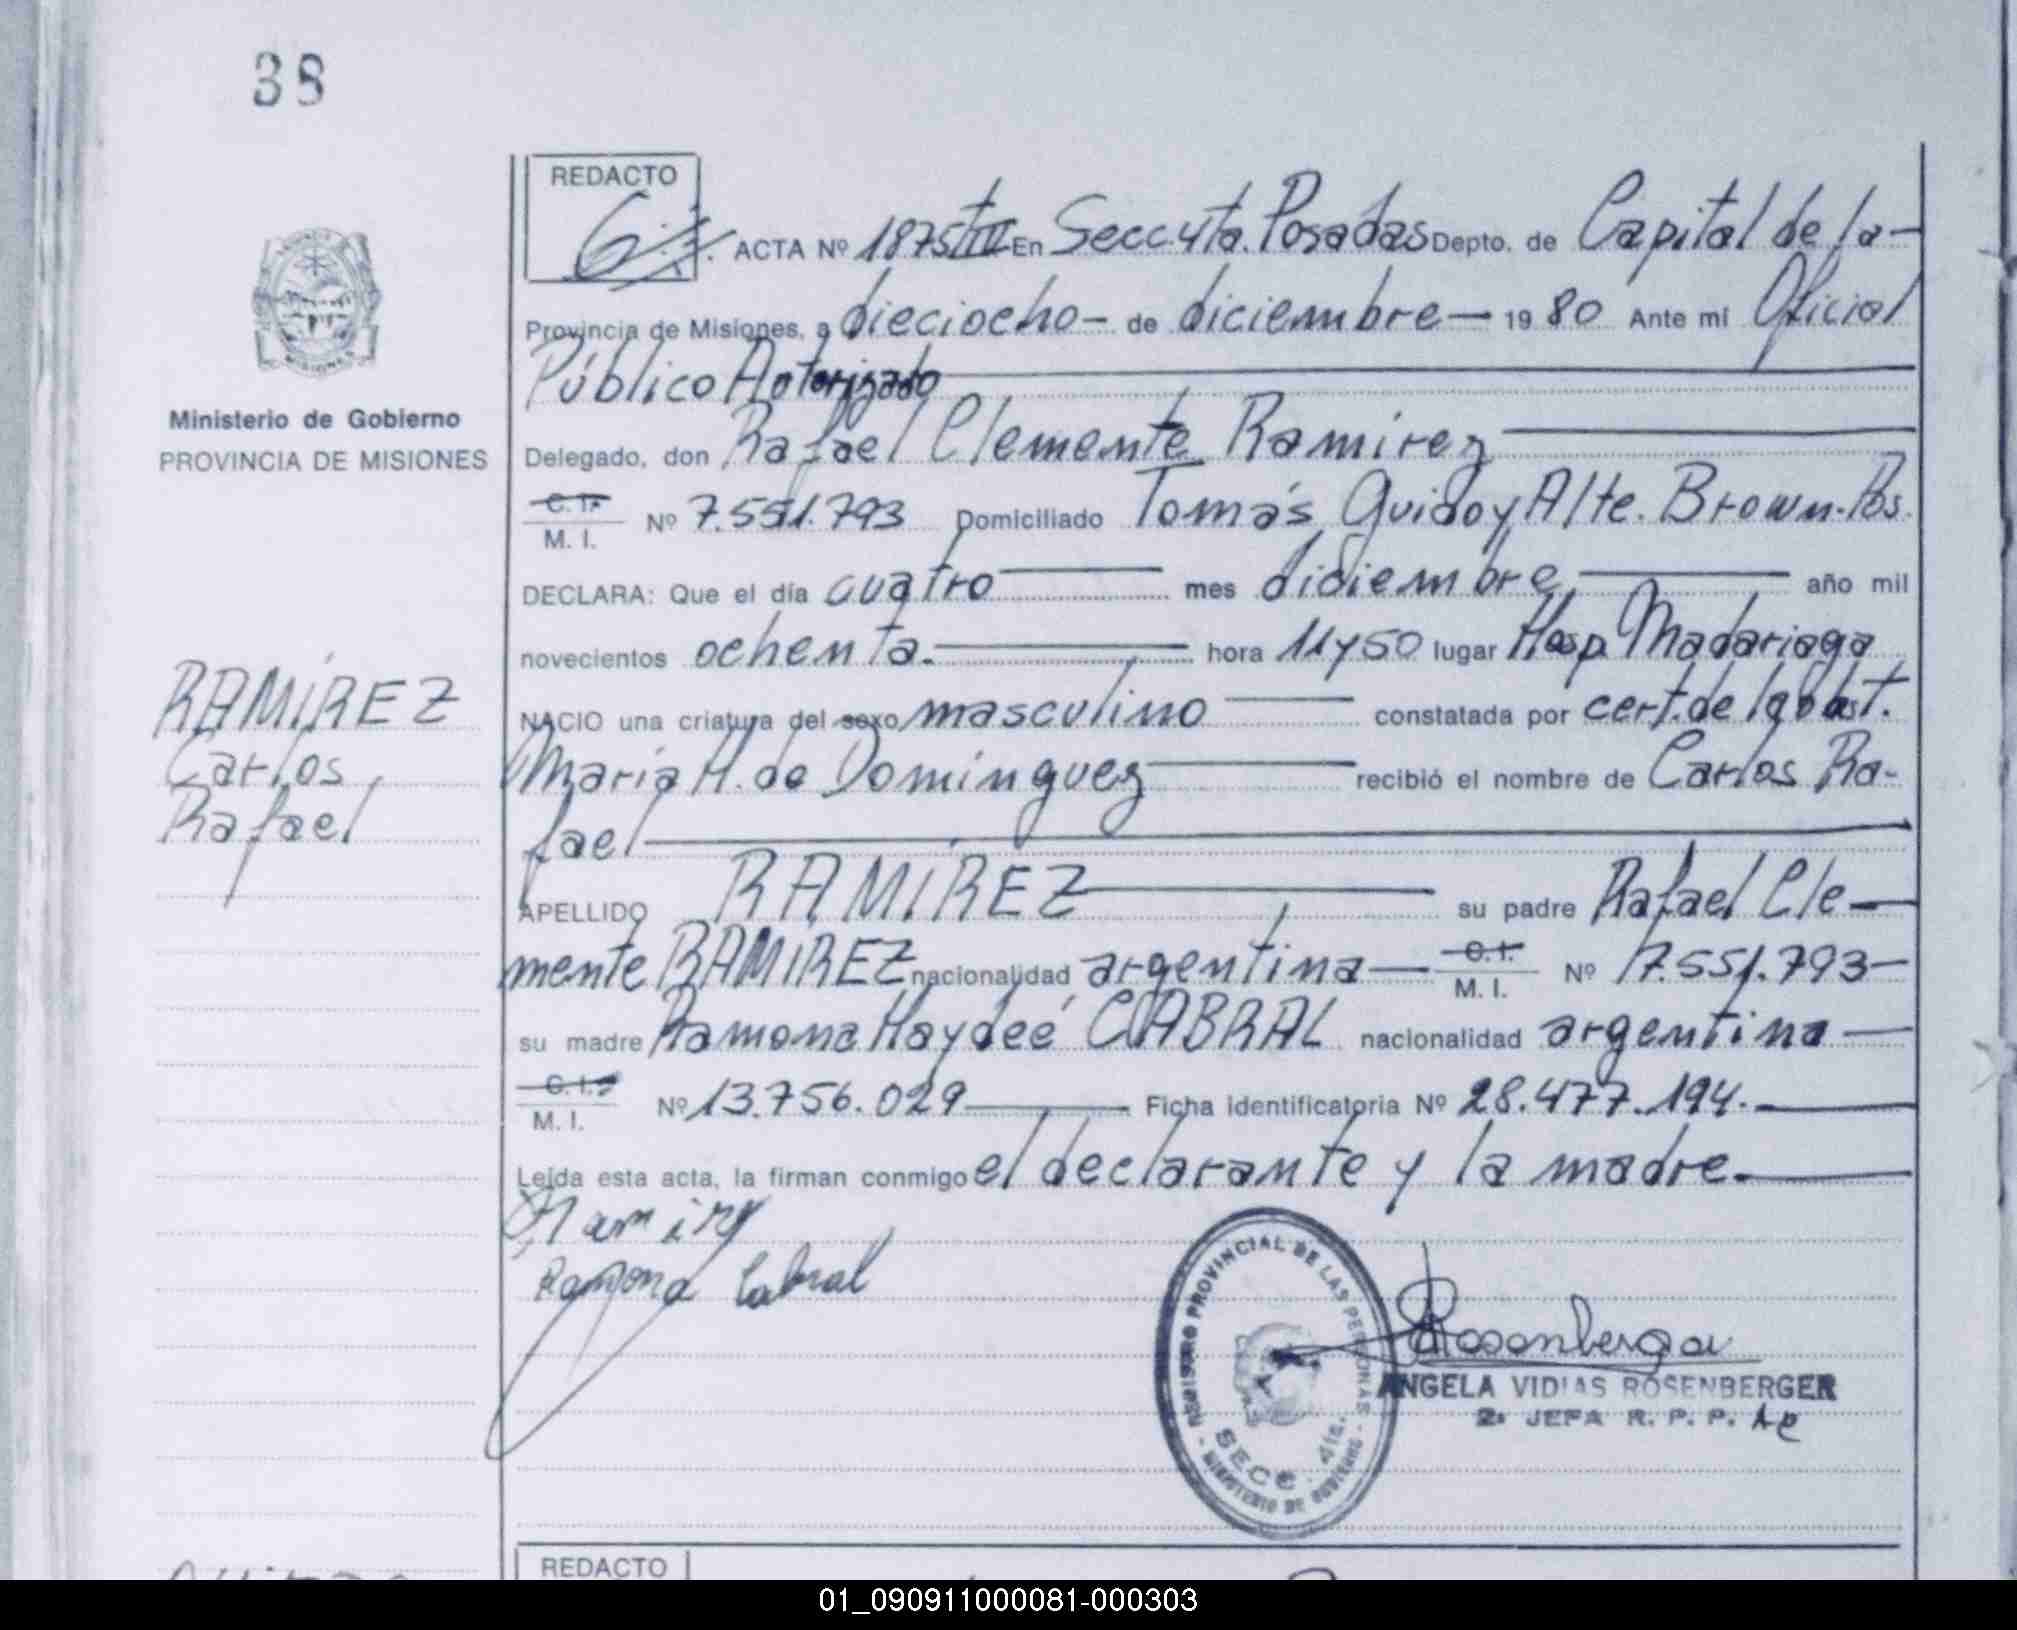 38
REDACTO
ACTA Nº 1875 En Secc. 4ta. Posadas Depto. de Capital de la-
Provincia de Misiones, a dieciocho- de diciembre- 1980 Ante mí Oficial
Público Autorizado
Ministerio de Gobierno
PROVINCIA DE MISIONES
Delegado, don Rafael Clemente Ramirez
C. I. M. I. Nº 7.551.793 Domiciliado Tomás Guido y Alte. Brown-Pos.
DECLARA: Que el día cuatro mes diciembre año mil
novecientos ochenta.- hora 11y50 lugar Hosp. Madariaga
RAMÍREZ
Carlos
Rafael
NACIO una criatura del sexo masculino constatada por cert. de la obst.
María H. de Domínguez recibió el nombre de Carlos Ra-
fael
APELLIDO RAMÍREZ su padre Rafael Cle-
mente RAMIREZ nacionalidad argentina- C. I. M. I. Nº 7.551.793-
su madre Ramona Haydeé CABRAL nacionalidad argentina-
C. I. M. I. Nº 13.756.029 Ficha identificatoria Nº 28.477.194.-
Leída esta acta, la firman conmigo el declarante y la madre.-
Ramirez
Ramona Cabral
REGISTRO PROVINCIAL DE LAS PERSONAS
SECC. 4ta.
MINISTERIO DE GOBIERNO
Rosenberger
ANGELA VIDIAS ROSENBERGER
2ª JEFA R. P. P.
REDACTO
01_090911000081-000303